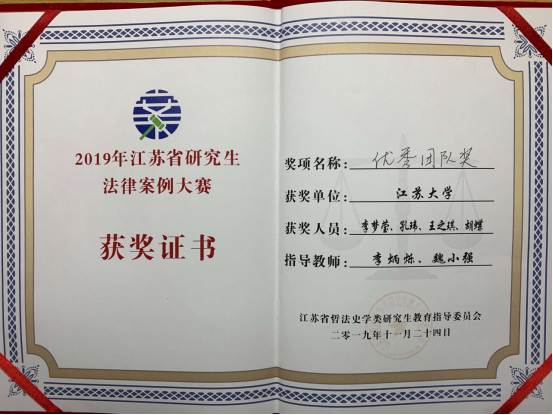 2019年江苏省研究生
法律案例大赛
获奖证书
奖项名称：优秀团队奖
获奖单位：江苏大学
获奖人员：李梦莹、孔玮、王之琪、胡蝶
指导教师：李炳烁、魏小强
江苏省哲法史学类研究生教育指导委员会
二零一九年十一月二十四日